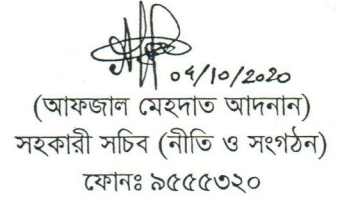 ০৫/১০/২০২০
(আফজাল মেহদাত আদনান)
সহকারী সচিব (নীতি ও সংগঠন)
ফোনঃ ৯৫৫৫৩২০